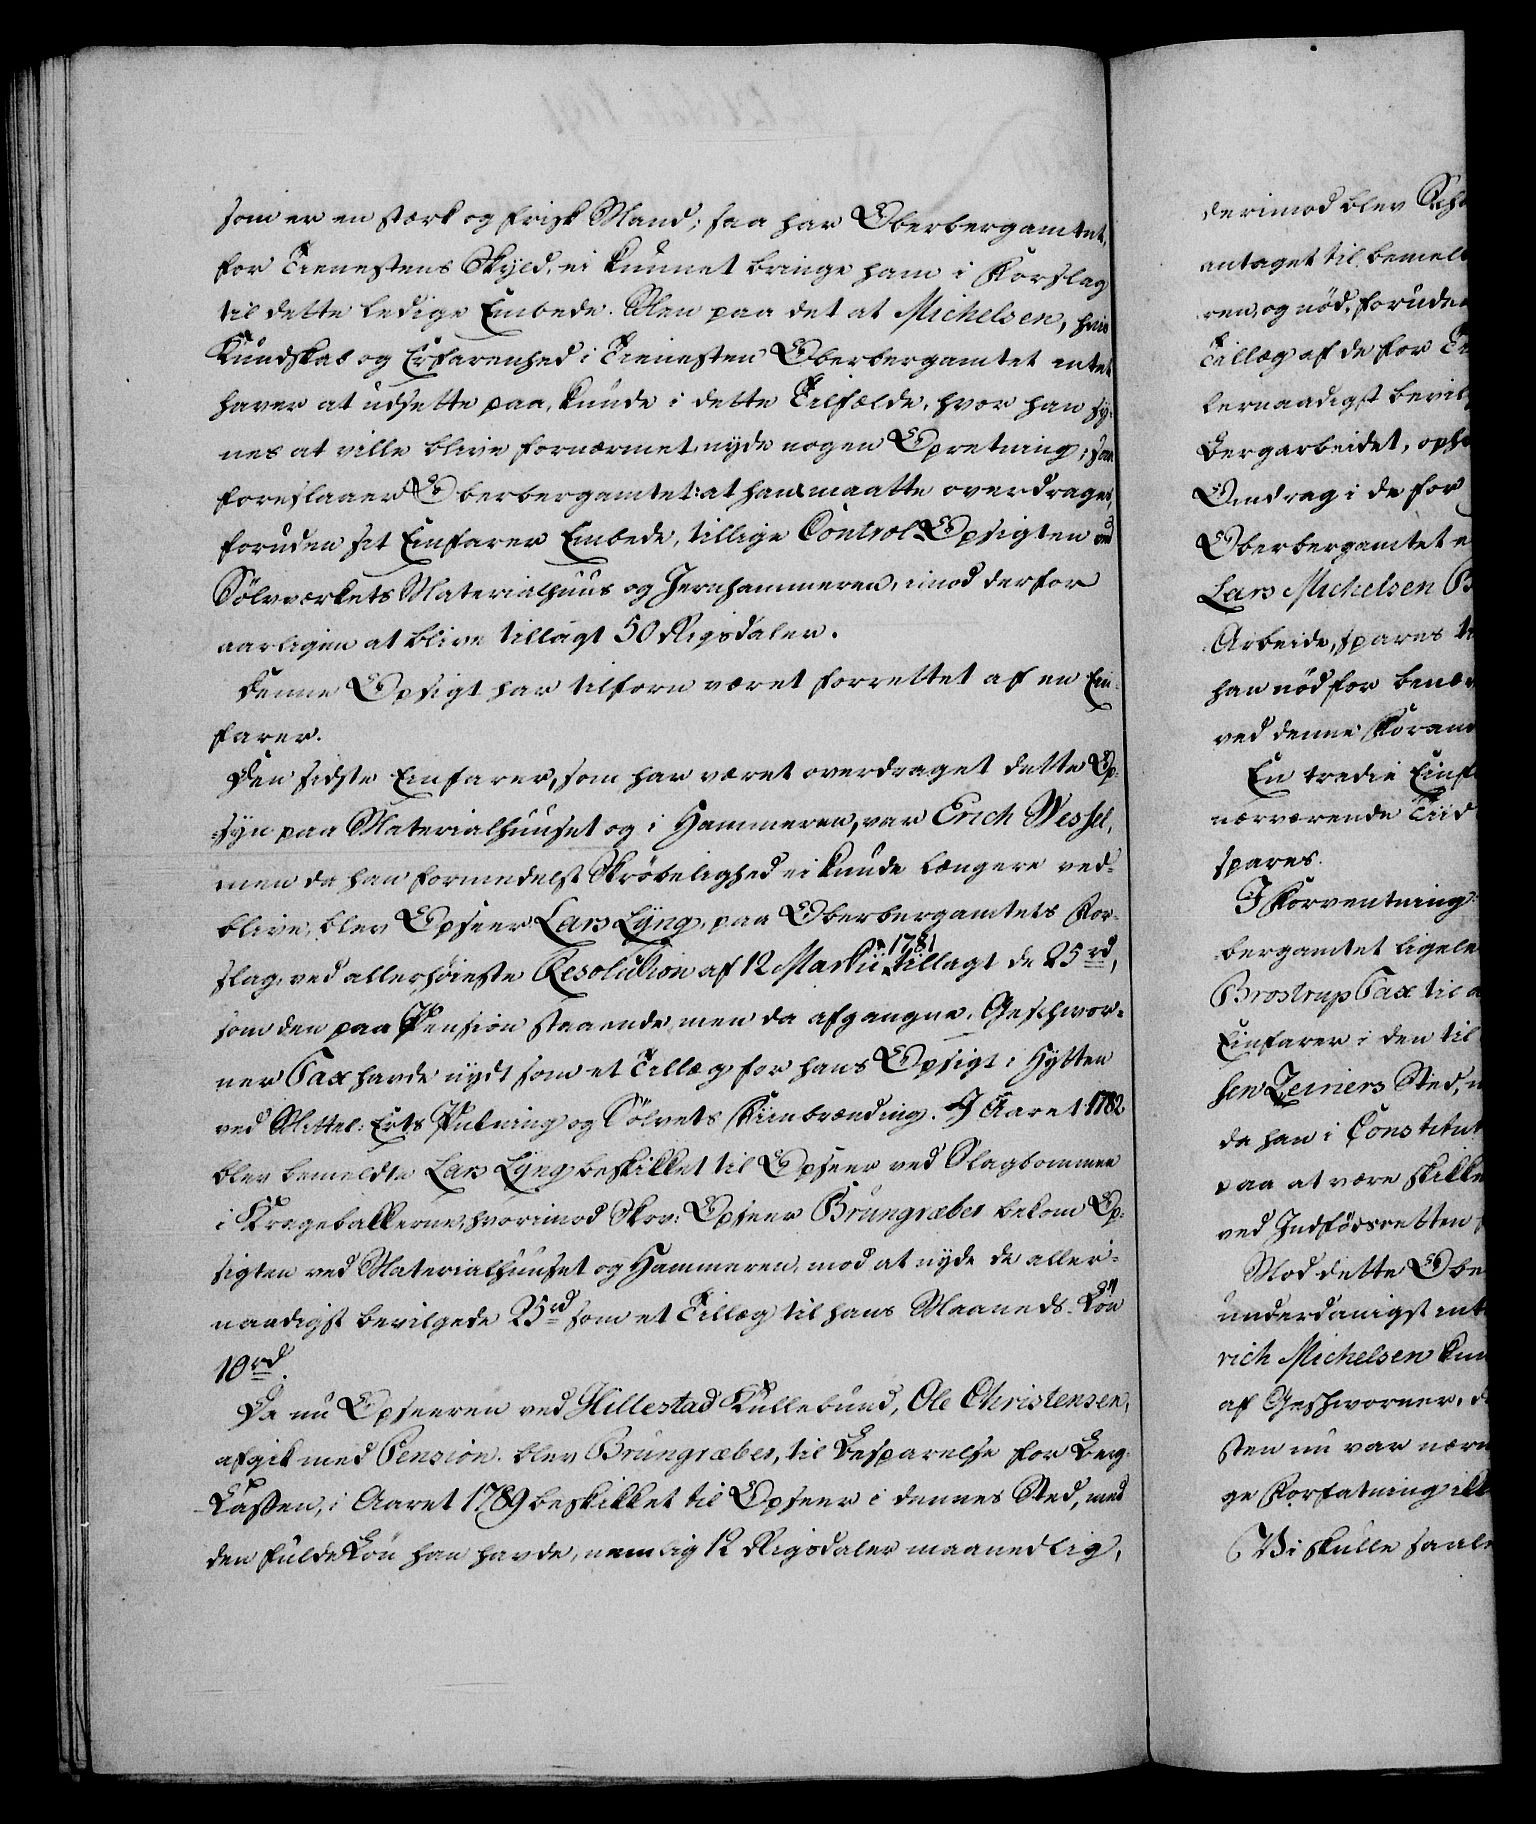 som er en stærk og frisk Mand; saa har Oberbergamtet,
for Tienestens Skyld, ei kunnet bringe ham i Forslag
til dette ledige Embede. Men paa det at Michelsen, hvis
Kundskab og Erfarenhed i Tienesten Oberbergamtet intet
haver at udsette paa, kunde i dette Tilfælde, hvor han sy-
nes at ville blive fornærmet, nyde nogen Opretning; saa
foreslaaer Oberbergamtet: at ham maatte overdrages,
foruden sit Einfarer Embede, tillige Control Opsigten ved
Sölvværkets Materialhuus og Jernhammeren, imod derfor
aarligen at blive tillagt 50 Rigsdaler.
Denne Opsigt har tilforn været forrettet af en Ein-
farer.
Den sidste Einfarer, som har været overdraget dette Op-
syn paa Materialhuuset og i Hammeren, var Erich Wessel,
men da han formedelst Skröbelighed ei kunde længere ved-
blive, blev Opseer Lars Lyng, paa Oberbergamtets For-
slag, ved allerhöieste Resolution af 12 Martii 1781 tillagt de 25 rd,
som den paa Pension staaende, men da afgangne, Geschwor-
ner Tax havde nydt som et Tillæg for hans Opsigt i Hytten
ved Mittel-Erts Pukning og Sölvets Fiinbrænding. I Aaret 1782
blev bemeldte Lars Lyng beskikket til Opseer ved Slagbommen
i Krageballerne, hvorimod Skov-Opseer Brungræber bekom Op-
sigten ved Materialhuuset og Hammeren, mod at nyde de aller-
naadigst bevilgede 25 rd som et Tillæg til hans Maaneds-Lön
10 rd.
Da nu Opseeren ved Hillestad Kullebund, Ole Christensen,
afgik med Pension, blev Brungræber, til Besparelse for Berg-
Kassen, i Aaret 1789 beskikket til Opseer i dennes Sted, med
den fulde Lön han havde, nemlig 12 Rigsdaler maanedlig,
derimod blev
antaget til bemelt
ren, og nöd, foruden
Tillæg af de for
lernaadigst bevil
Bergarbeidet, oph
Omdrag i de for
Oberbergamtet
Lars Michelsen
Arbeide, spares
han nöd for benæv
ved denne Foran
En tredie Einf
nærværende Tiid
spares.
I Forventning
bergamtet ligele
Brostrup Tax til
Einfarer i den til
sen Zeiners Sted,
da han i Constitut
paa at være skikke
ved Indfödsretten
Mod dette Obe
underdanigst int
rich Michelsen kun
af Geschworner, d
sten nu var nærm
ge Forfatning ikk
Vi skulle saale